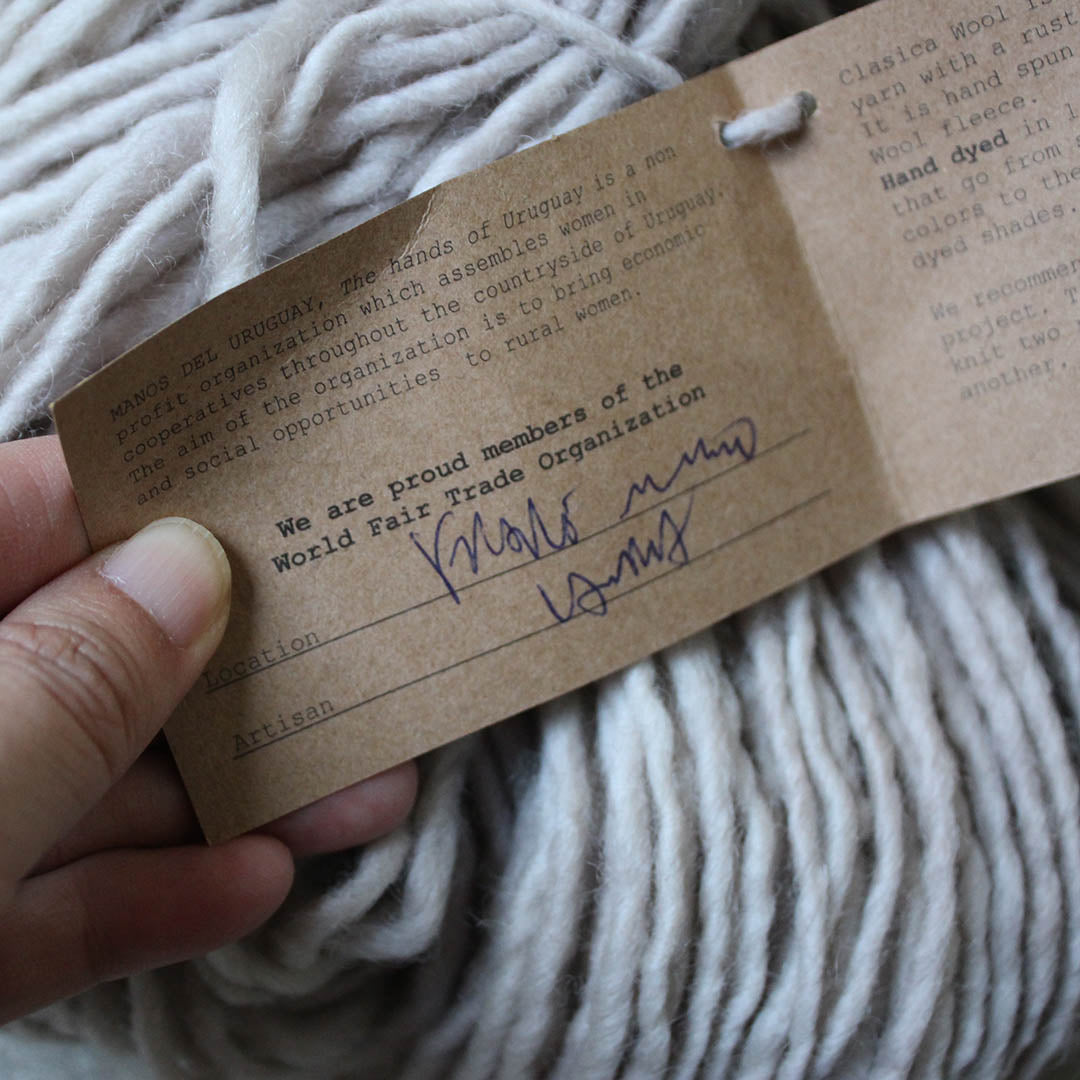 MANOS DEL URUGUAY, The hands of Uruguay is a non
profit organization which assembles women in
cooperatives throughout the countryside of Uruguay.
The aim of the organization is to bring economic
and social opportunities to rural women.
We are proud members of the
World Fair Trade Organization
Location
Artisan
Clasica Wool is
yarn with a rust
It is hand spun
Wool fleece.
Hand dyed in l
that go from s
colors to the
dyed shades.
We recommen
project. T
knit two
another.